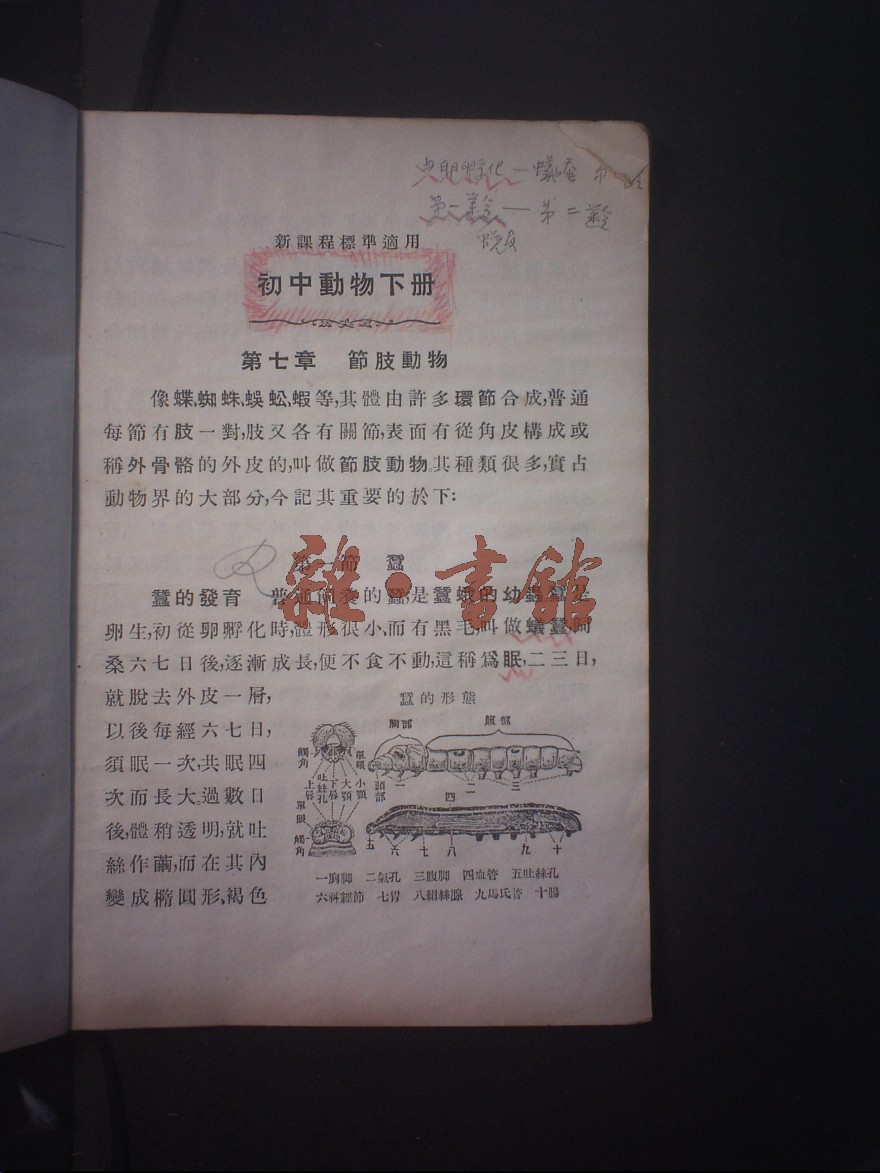 第一齡——第二齡
新課程標準適用
初中動物下册
第七章 節肢動物
像蝶、蜘蛛、蜈蚣、蝦等,其體由許多環節合成,普通
每節有肢一對,肢又各有關節,表面有從角皮構成或
稱外骨骼的外皮的,叫做節肢動物。其種類很多,實占
動物界的大部分,今記其重要的於下:
雜·書館
第一節 蠶
蠶的發育 普通飼養的蠶,是蠶蛾的幼蟲。蠶是
卵生,初從卵孵化時,體形很小,而有黑毛,叫做蟻蠶,飼
桑六七日後,逐漸成長,便不食不動,這稱爲眠,二三日,
就脫去外皮一層,
以後每經六七日,
須眠一次,共眠四
次而長大。過數日
後,體稍透明,就吐
絲作繭,而在其內
變成橢圓形、褐色
蠶的形態
胸部 腹部
觸角 單眼
上唇 吐絲孔 下唇 大顎 小顎
頭部 一 二 三
單眼 四
觸角 五 六 七 八 九 十
一胸脚 二氣孔 三腹脚 四血管 五吐絲孔
六神經節 七胃 八絹絲腺 九馬氏管 十腸